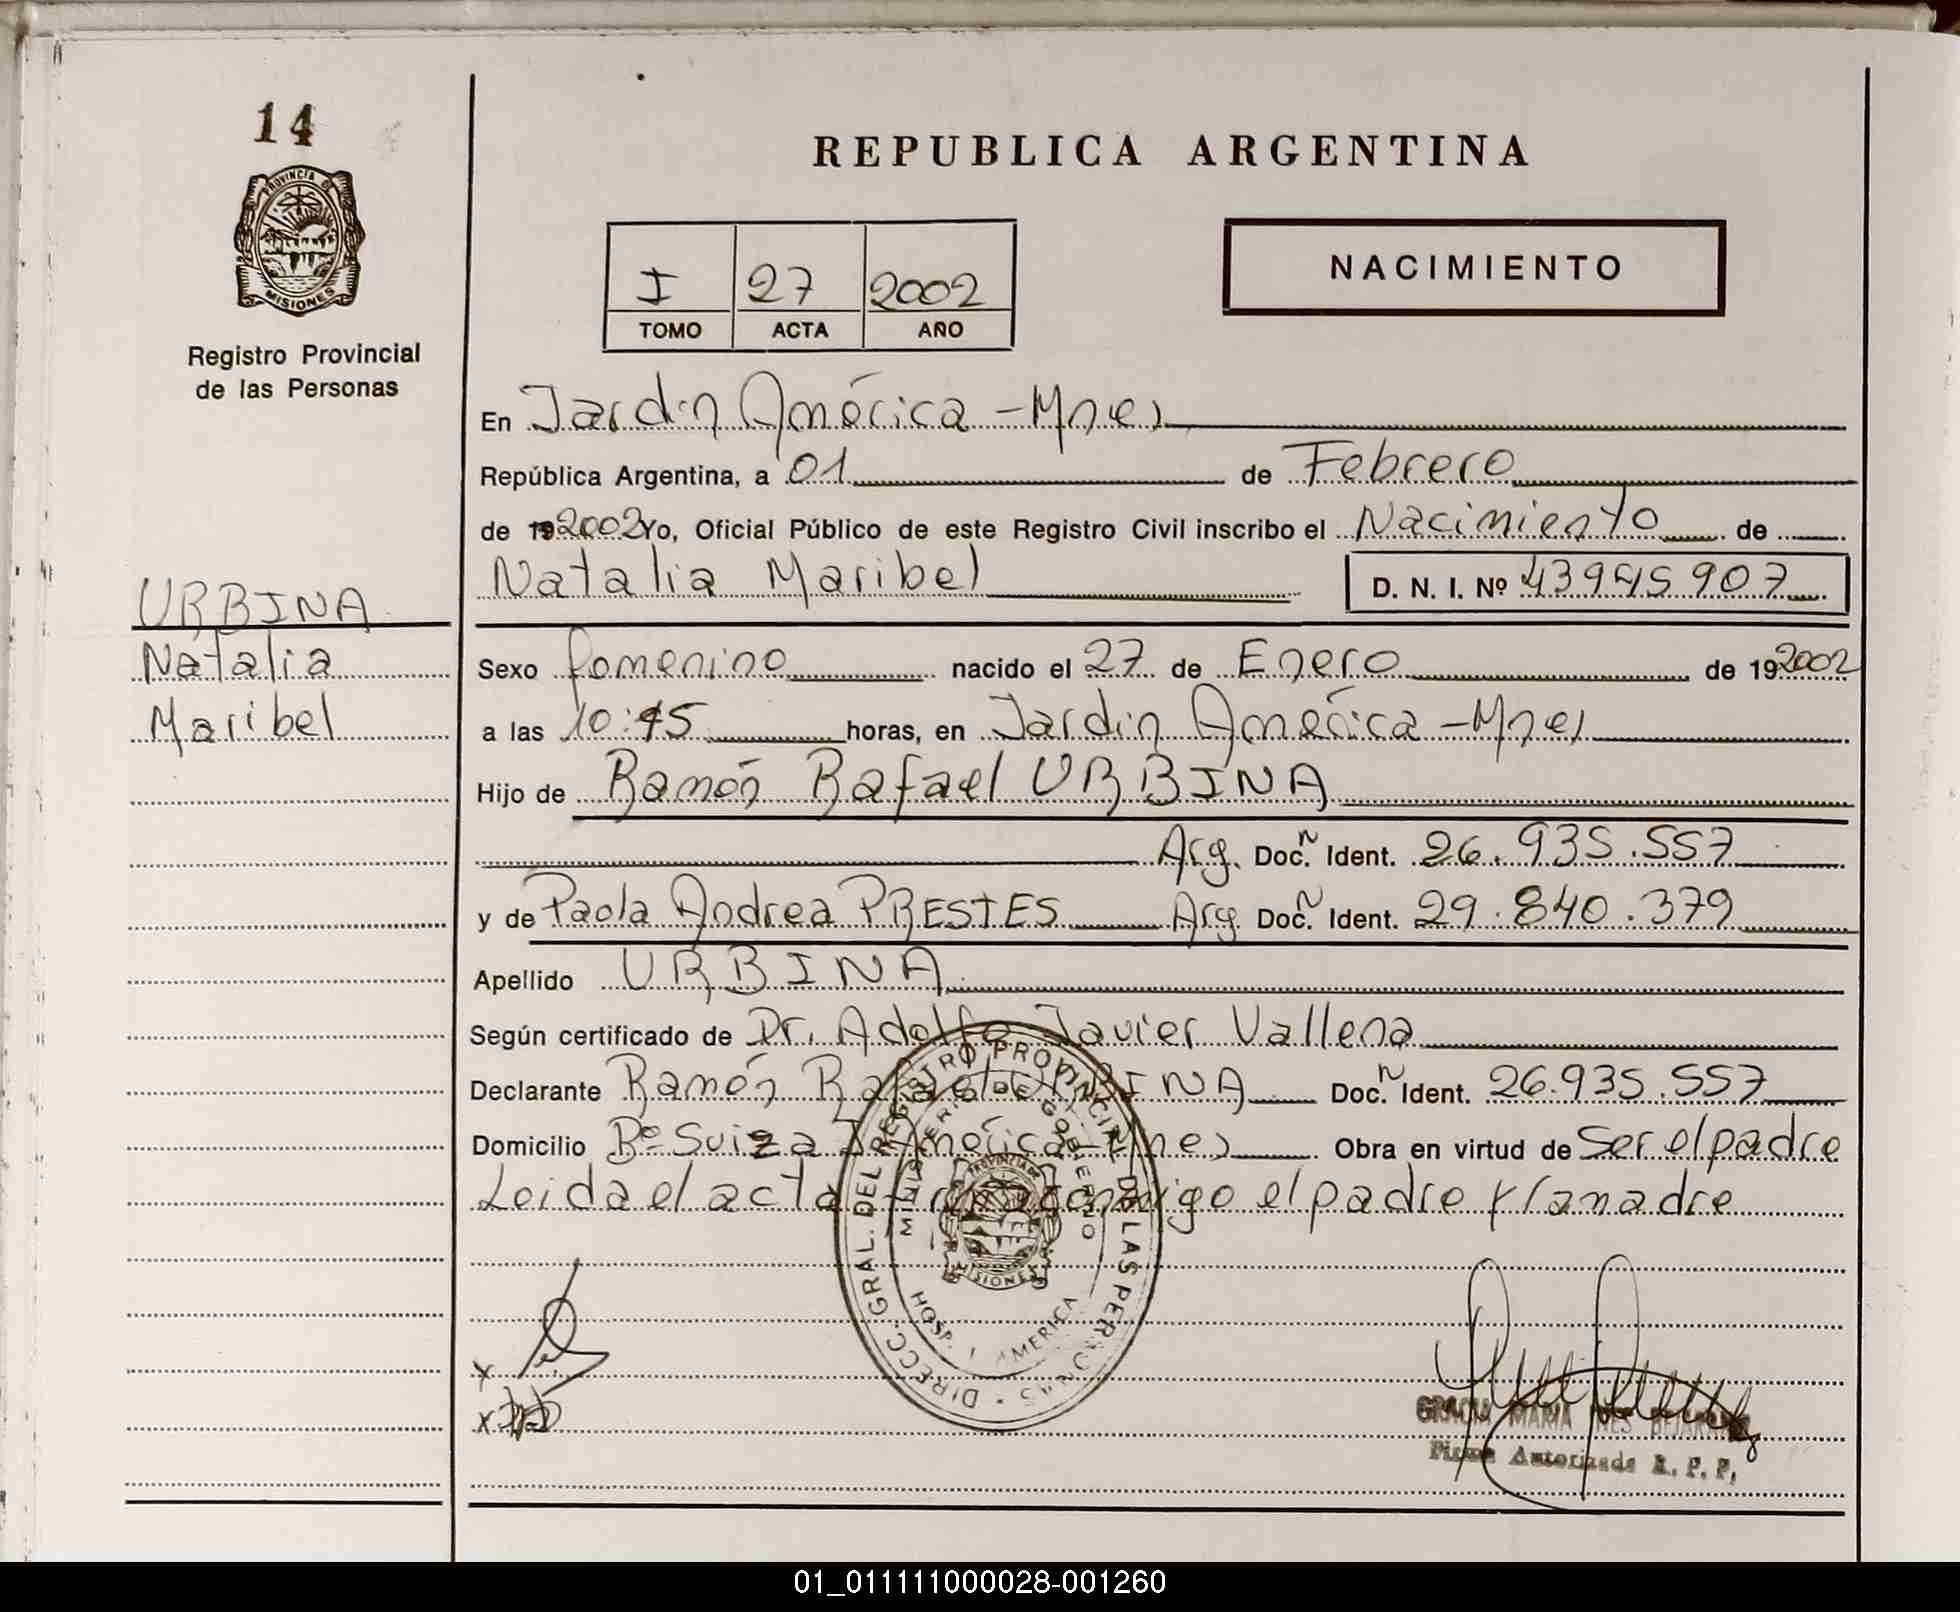 14
PROVINCIA DE
MISIONES
Registro Provincial
de las Personas
REPUBLICA ARGENTINA
I 27 2002
TOMO ACTA AÑO
NACIMIENTO
En Jardín América - Mnes
República Argentina, a 01 de Febrero
de 19 2002 Yo, Oficial Público de este Registro Civil inscribo el Nacimiento de
Natalia Maribel D. N. I. Nº 43945907
URBINA
Natalia
Maribel
Sexo femenino nacido el 27 de Enero de 19 2002
a las 10:45 horas, en Jardín América - Mnes
Hijo de Ramón Rafael URBINA
Arg. Doc. N Ident. 26.935.557
y de Paola Andrea PRESTES Arg. Doc. N Ident. 29.840.379
Apellido URBINA
Según certificado de Dr. Adolfo Javier Vallena
Declarante Ramón Rafael URBINA Doc. N Ident. 26.935.557
Domicilio Bº Suiza J. América - Mnes Obra en virtud de Ser el padre
Leida el acta firma conmigo el padre y la madre
DIRECC. GRAL. DEL REGISTRO PROVINCIAL DE LAS PERSONAS
MINISTERIO DE GOBIERNO
PROVINCIA DE
MISIONES
HOSP. J. AMERICA
x
x
GRACIA MARIA INES BEJARANO
Firma Autorizada R. P. P.
01_011111000028-001260